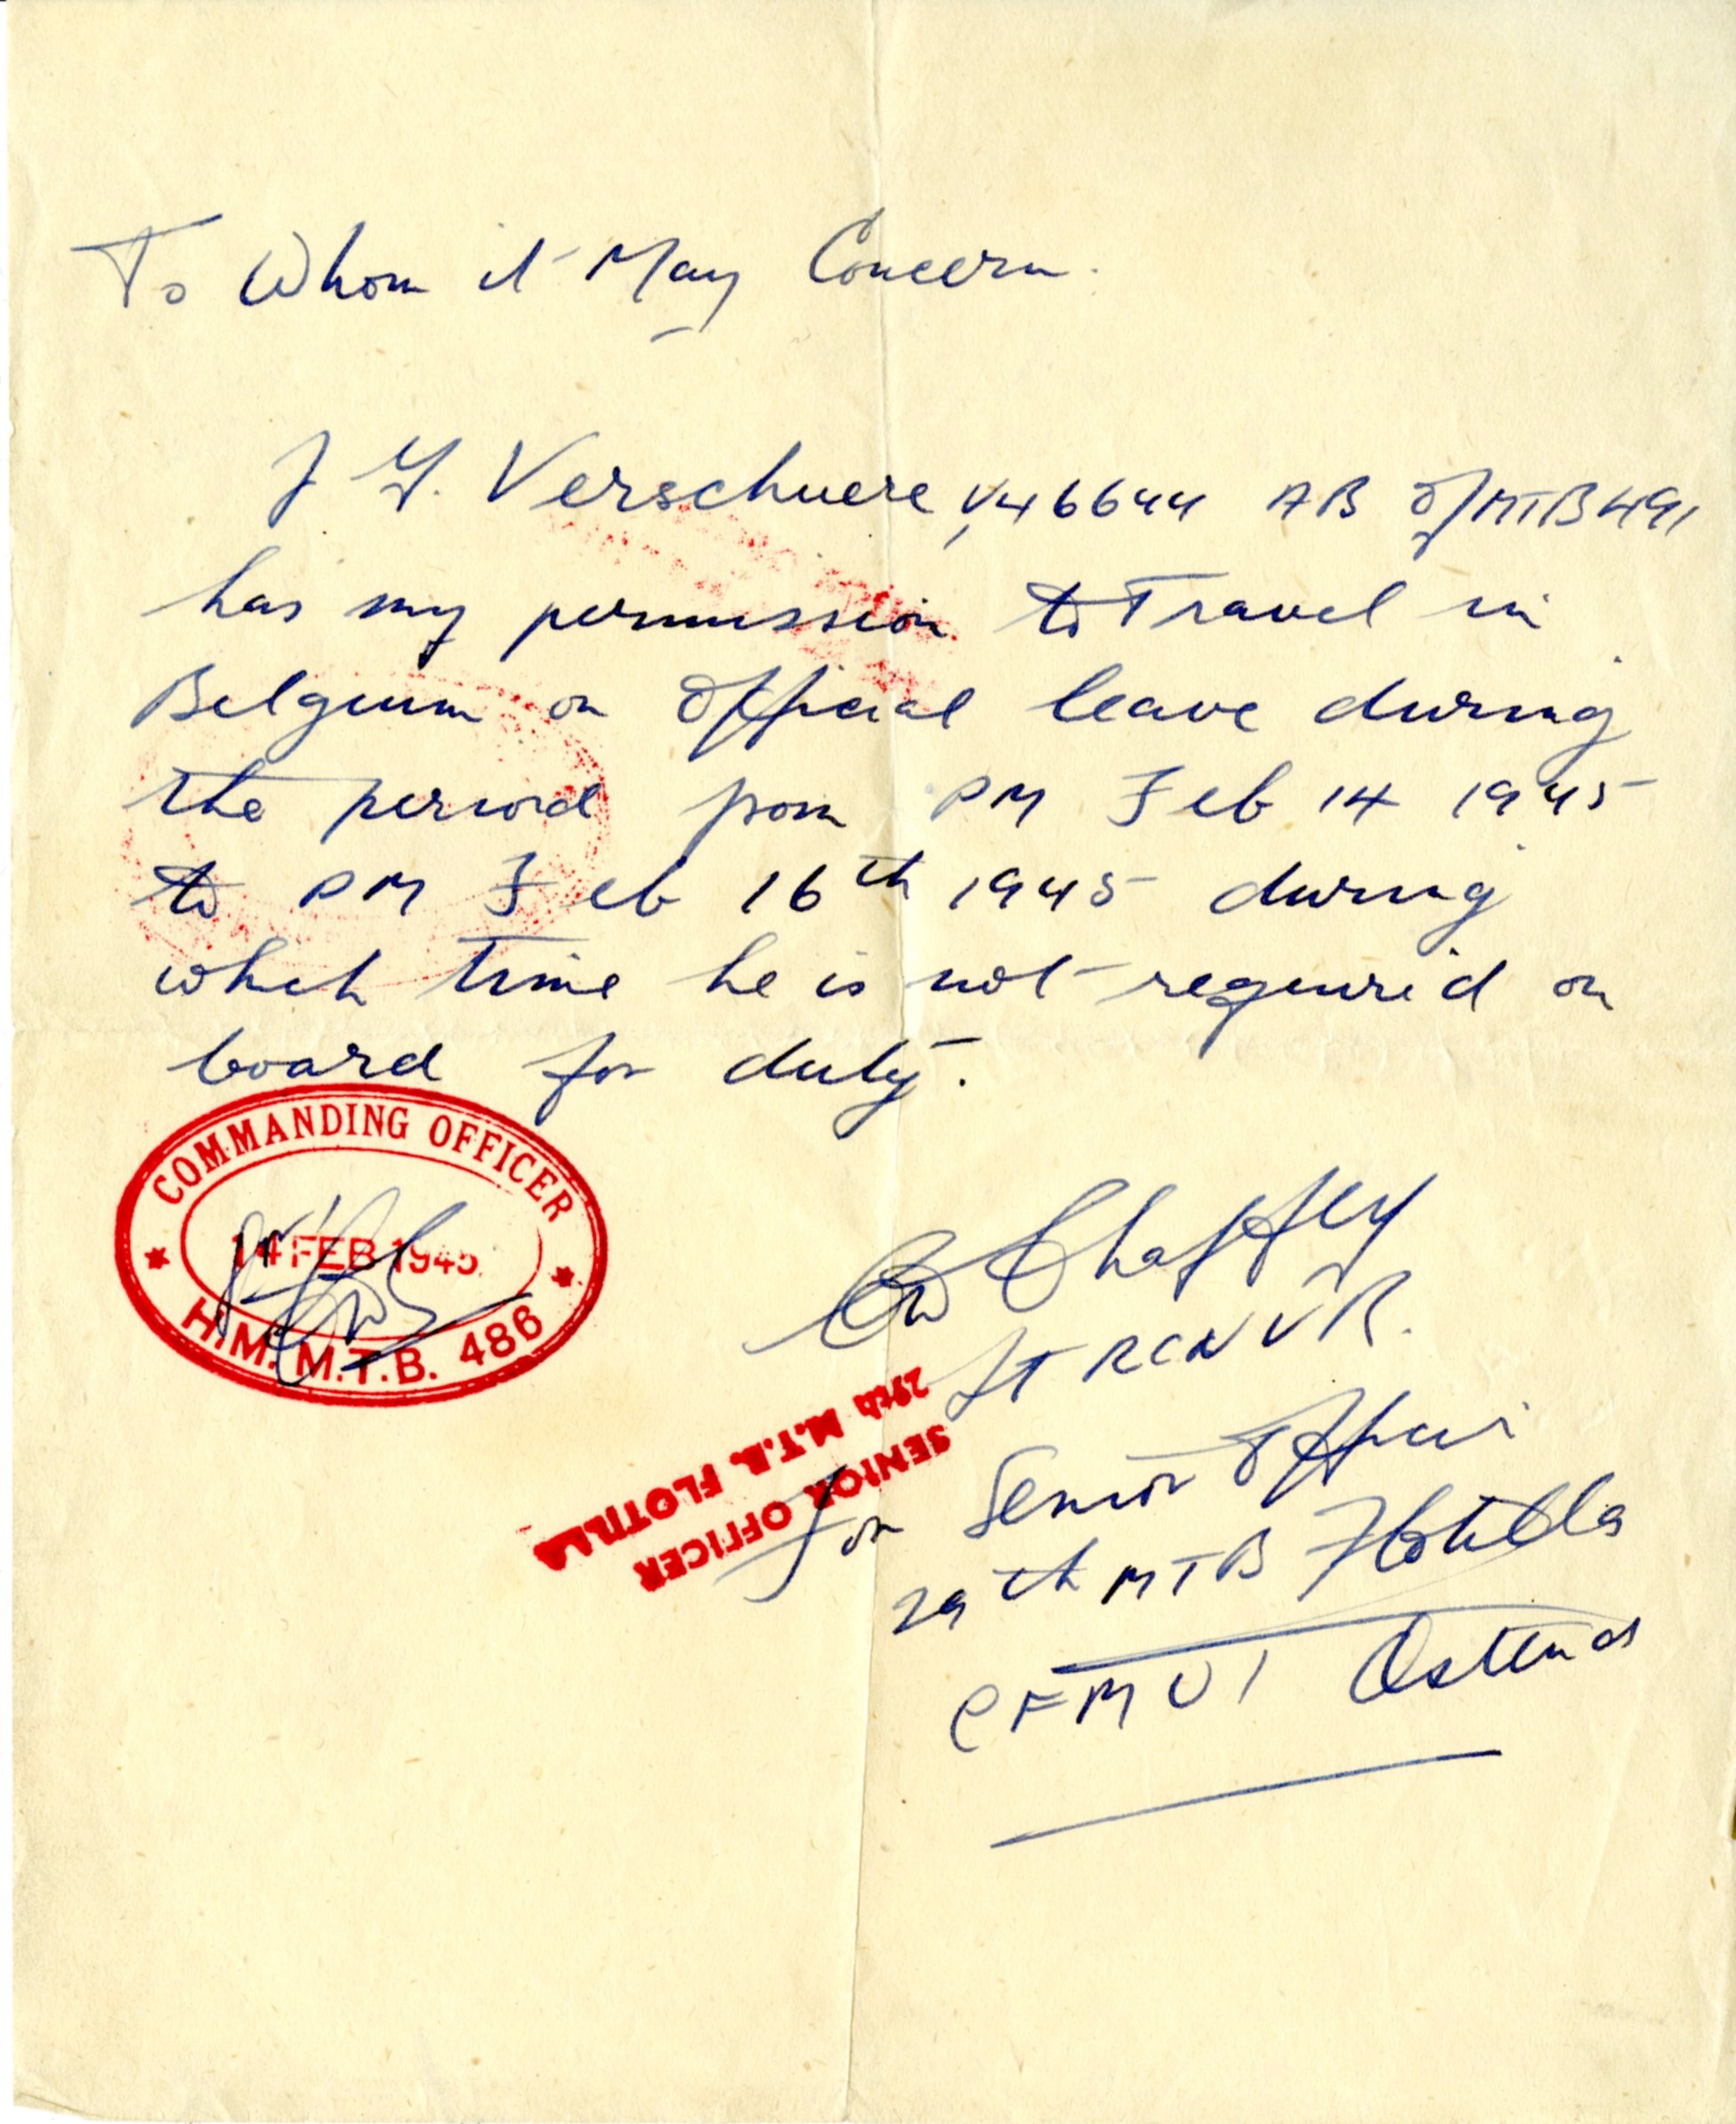 To Whom it May Concern.
J G. Verschuere, V46644 AB of MTB 491
has my permission to Travel in
Belgium on Official leave during
the period from PM Feb 14 1945
to PM Feb 16th 1945 during
which time he is not required on
board for duty.
COMMANDING OFFICER
14 FEB 1945
H.M. M.T.B. 486
Chaffey
Lt RCNVR.
SENIOR OFFICER
29th M.T.B. FLOTILLA
for Senior Officer
29th MTB Flotilla
CFMU 1 Ostend